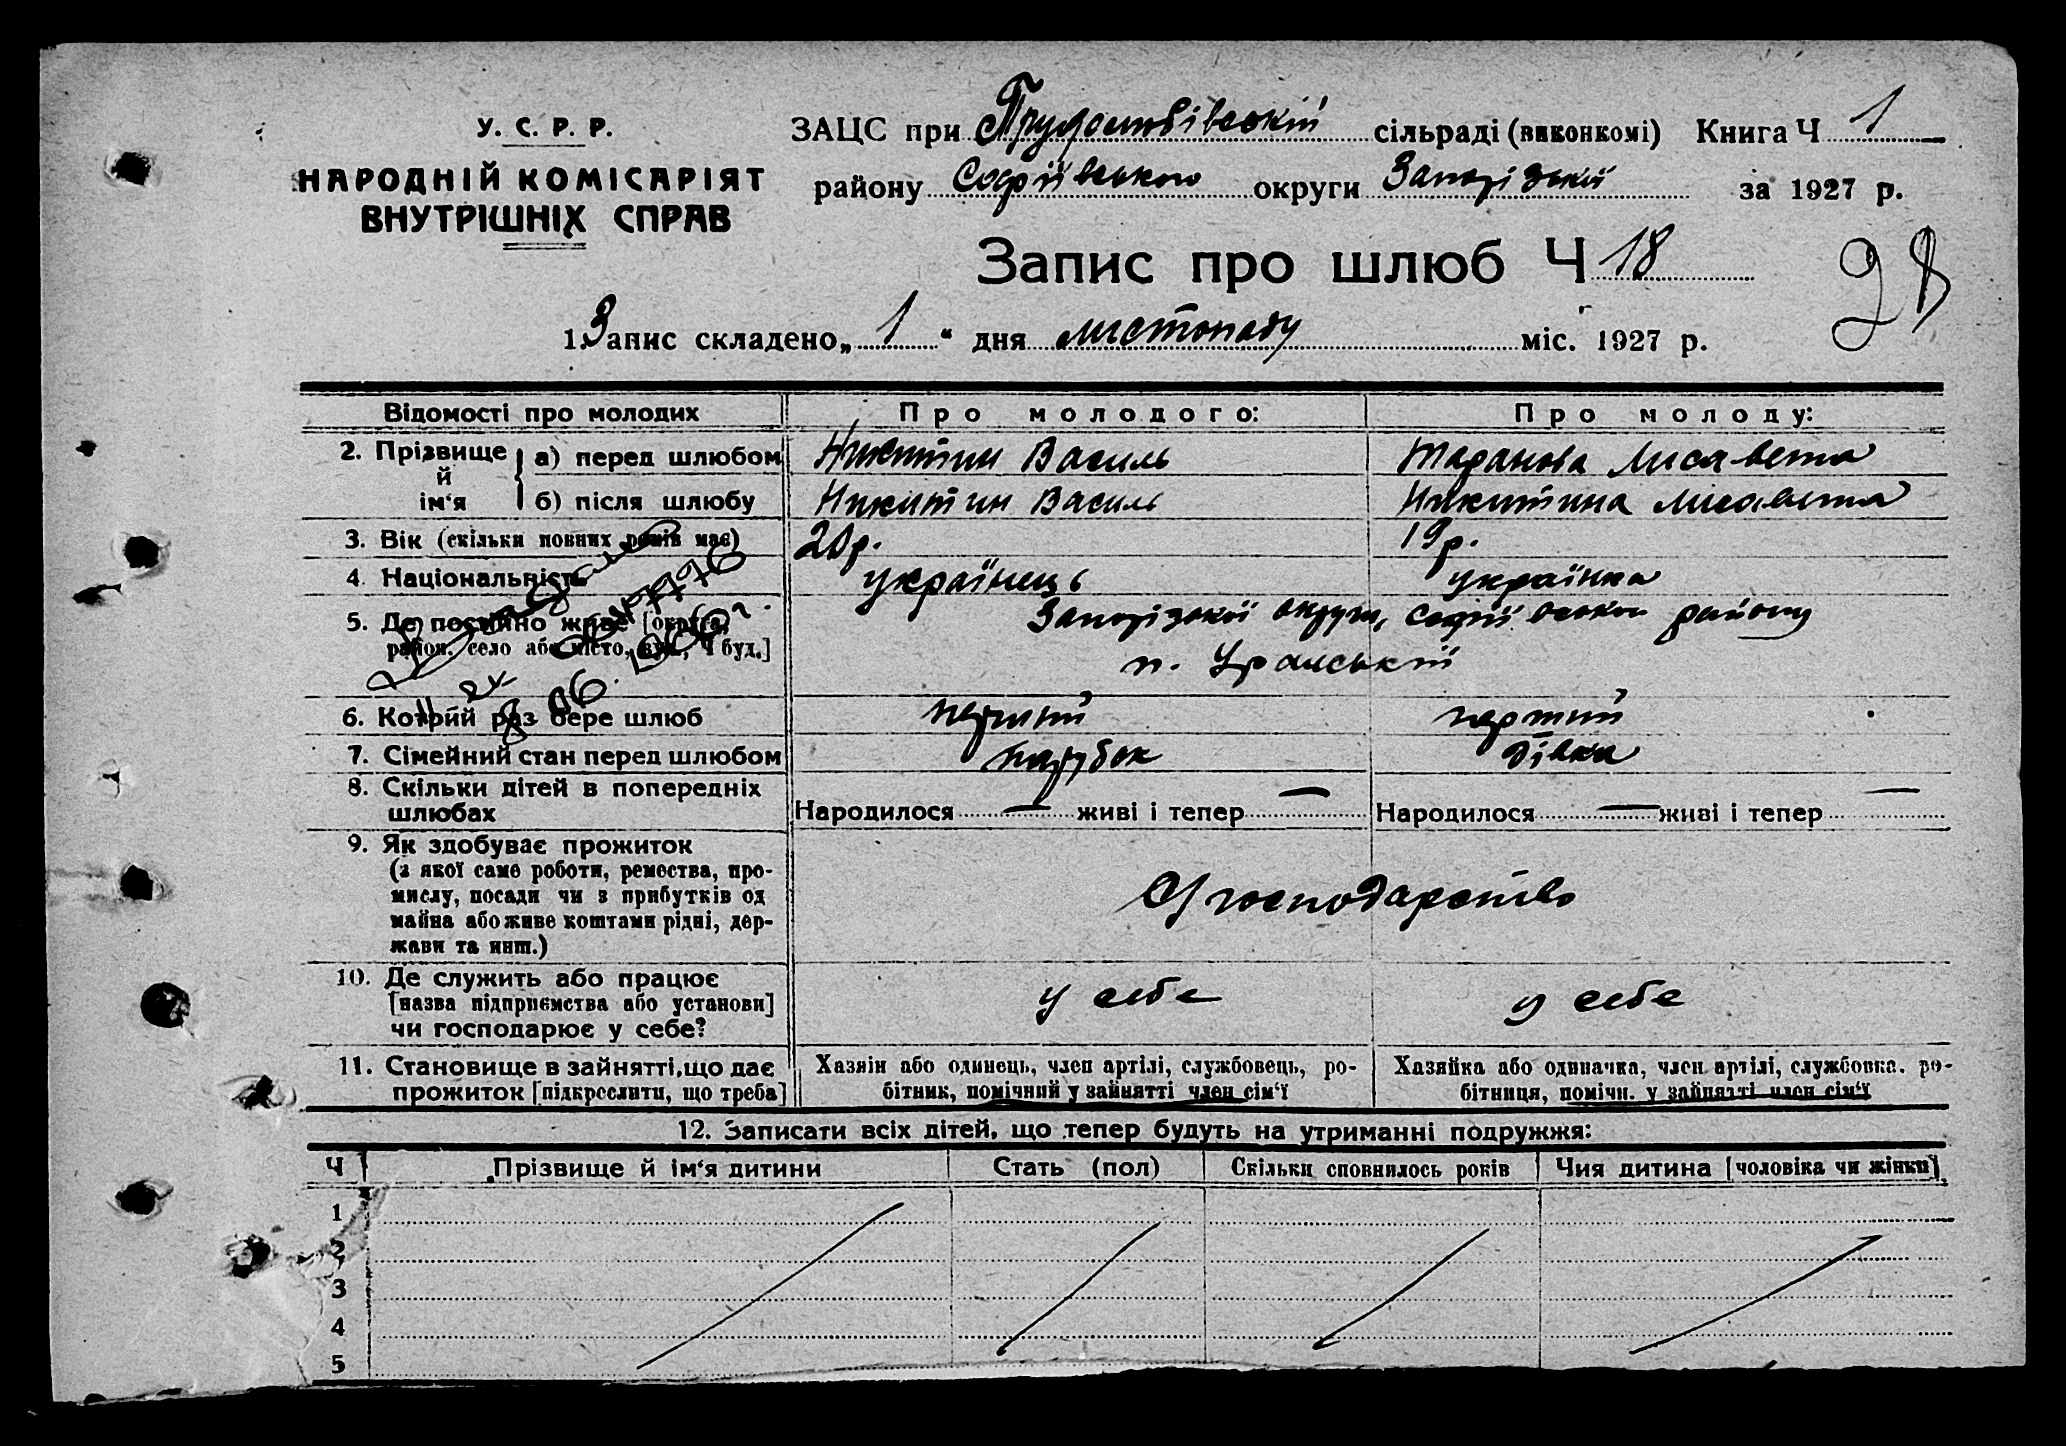 У. С. Р. Р.
НАРОДНІЙ КОМІСАРІЯТ
ВНУТРІШНІХ СПРАВ
ЗАЦС при сільраді (виконкомі) Книга Ч 1
району Софіївського округи Запорізької за 1927 р.
Запис про шлюб Ч 18
28
1. Запис складено „ 1 “ дня листопаду міс. 1927 р.
Відомості про молодих Про молодого: Про молоду:
2. Прізвище й ім‘я
а) перед шлюбом Никитин Василь Таранова Лисавета
б) після шлюбу Никитин Василь Никитина Лисавета
3. Вік (скільки повних років має) 20 р. 19 р.
4. Національність українець українка
5. Де постійно живе [округа, Запорізької округи, Софіївського району
район, село або місто, вул., Ч буд.] п.
6. Котрий раз бере шлюб перший перший
7. Сімейний стан перед шлюбом парубок дівка
8. Скільки дітей в попередніх
шлюбах Народилося — живі і тепер — Народилося — живі і тепер —
9. Як здобуває прожиток
(з якої саме роботи, ремества, про-
мислу, посади чи з прибутків од
майна або живе коштами рідні, дер-
жави та инш.)
С/господарство
10. Де служить або працює
[назва підприємства або установи] у себе у себе
чи господарює у себе?
11. Становище в зайнятті, що дає Хазяїн або одинець, член артілі, службовець, ро- Хазяйка або одиначка, член артілі, службовка, ро-
прожиток [підкреслити, що треба] бітник, помічний у зайнятті член сім‘ї бітниця, помічн. у зайнятті член сім‘ї
12. Записати всіх дітей, що тепер будуть на утриманні подружжя:
Ч Прізвище й ім‘я дитини Стать (пол) Скільки сповнилось років Чия дитина [чоловіка чи жінки]
1
2
3
4
5